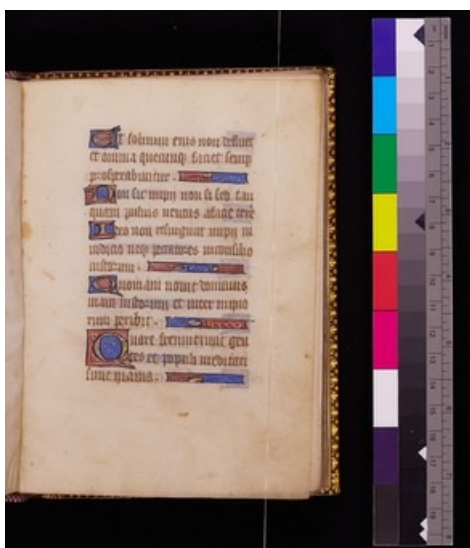 Et folium eius non defluet
et omnia quecunq; faciet semp
prosperabuntur
Non sic impii non sic sed tan
quam pulvis quem
Ideo non resurgunt impii in
iudicio neq; peccatores in consilio
iustorum
Quoniam novit dominus
viam iustorum et iter impio
rum peribit
Quare fremuerunt gen
tes et populi meditati
sunt inania